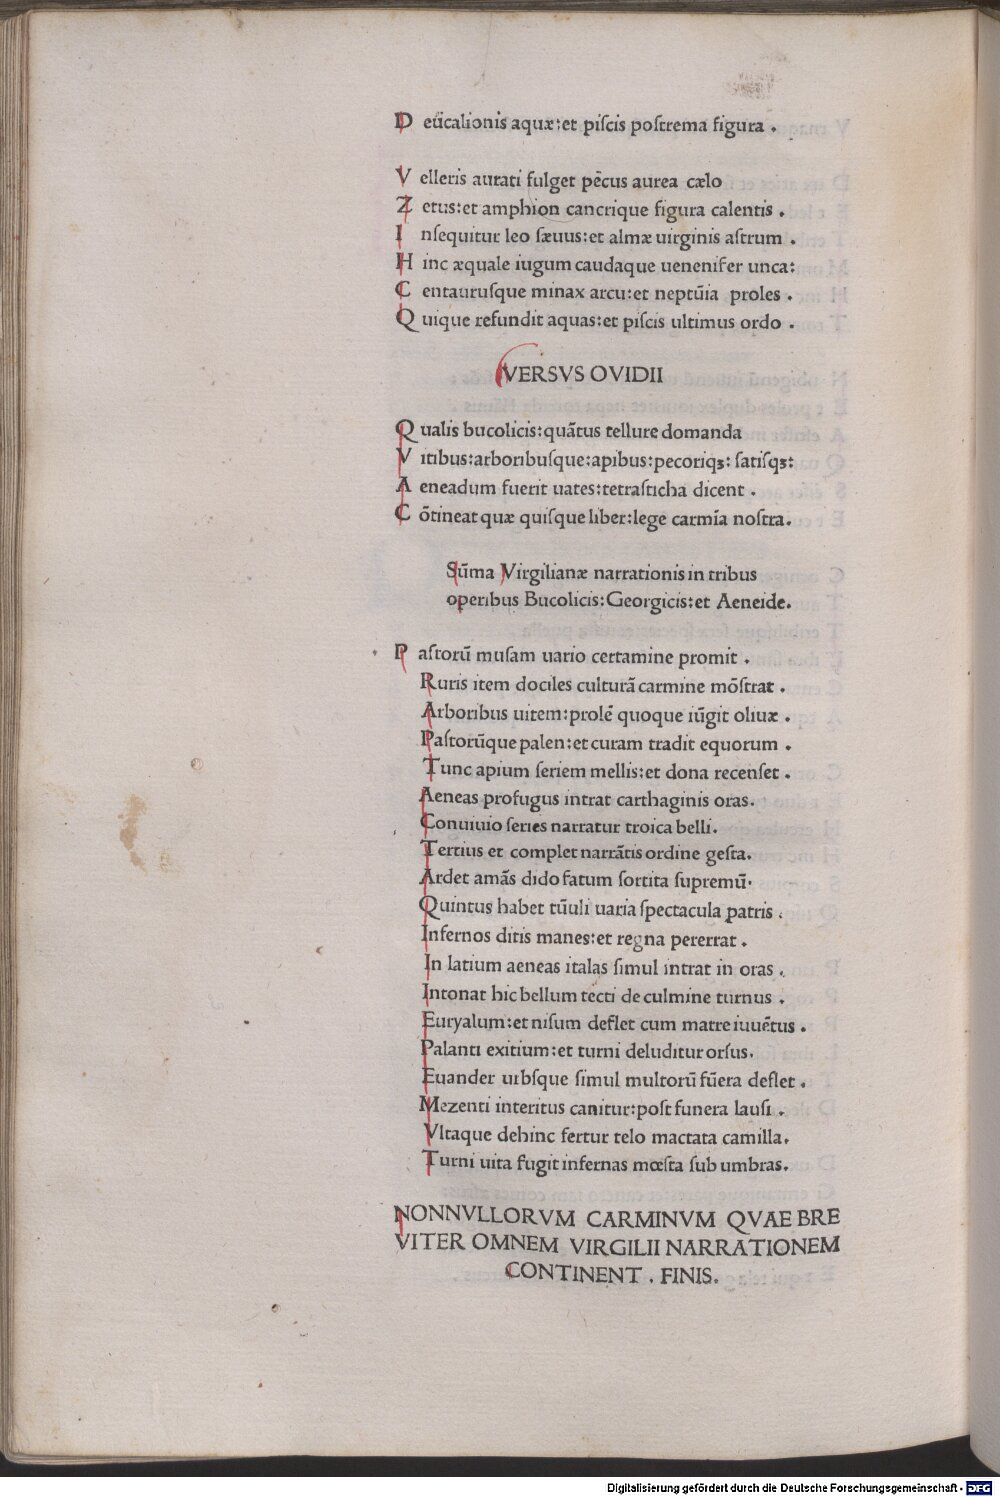 D eūcalionis aquæ:et piſcis poſtrema figura .
V elleris aurati fulget pēcus aurea cælo
Z etus:et amphion cancrique figura calentis .
I nſequitur leo ſæuus:et almæ uirginis aſtrum .
H inc æquale iugum caudaque uenenifer unca:
C entauruſque minax arcu:et neptūia proles .
Q uique refundit aquas:et piſcis ultimus ordo .
VERSVS OVIDII
Q ualis bucolicis:quātus tellure domanda
V itibus:arboribuſque:apibus:pecoriqꝫ: ſatiſqꝫ:
A eneadum fuerit uates:tetraſticha dicent .
C ōtineat quæ quiſque liber:lege carmīa noſtra.
Sūma Virgilianæ narrationis in tribus
operibus Bucolicis:Georgicis:et Aeneide.
P aſtorū muſam uario certamine promit .
Ruris item dociles culturā carmine mōſtrat .
Arboribus uitem:prolē quoque iūgit oliuæ .
Paſtorūque palen:et curam tradit equorum .
Tunc apium ſeriem mellis:et dona recenſet .
Aeneas profugus intrat carthaginis oras.
Conuiuio ſeries narratur troica belli.
Tertius et complet narrātis ordine geſta.
Ardet amās dido fatum ſortita ſupremū.
Quintus habet tūuli uaria ſpectacula patris .
Infernos ditis manes:et regna pererrat .
In latium aeneas italas ſimul intrat in oras .
Intonat hic bellum tecti de culmine turnus .
Euryalum:et niſum deflet cum matre iuuētus .
Palanti exitium:et turni deluditur orſus.
Euander urbſque ſimul multorū fūera deflet .
Mezenti interitus canitur:poſt funera lauſi .
Vltaque dehinc fertur telo mactata camilla.
Turni uita fugit infernas mœſta ſub umbras.
NONNVLLORVM CARMINVM QVAE BRE
VITER OMNEM VIRGILII NARRATIONEM
CONTINENT . FINIS.
Digitalisierung gefördert durch die Deutsche Forschungsgemeinschaft - DFG